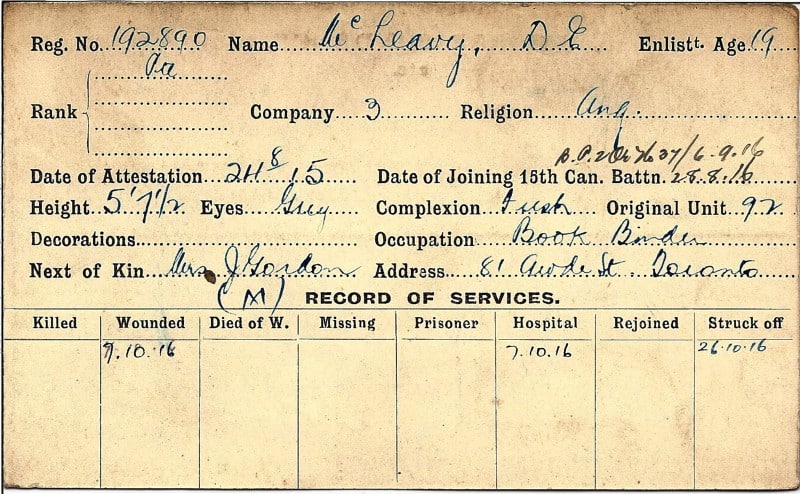 Reg. No. 192890 Name Mc Leavy, D E Enlistt. Age 19
Rank Pte Company 3 Religion Ang.
6.9.16
Date of Attestation 24 8 15 Date of Joining 15th Can. Battn. 28.8.16
Height 5' 7 1/2 Eyes Grey Complexion Fresh Original Unit 92
Decorations Occupation Book Binder
Next of Kin Mrs J Gordon Address 81 St. Toronto
(M) RECORD OF SERVICES.
Killed Wounded Died of W. Missing Prisoner Hospital Rejoined Struck off
7.10.16 7.10.16 26.10.16